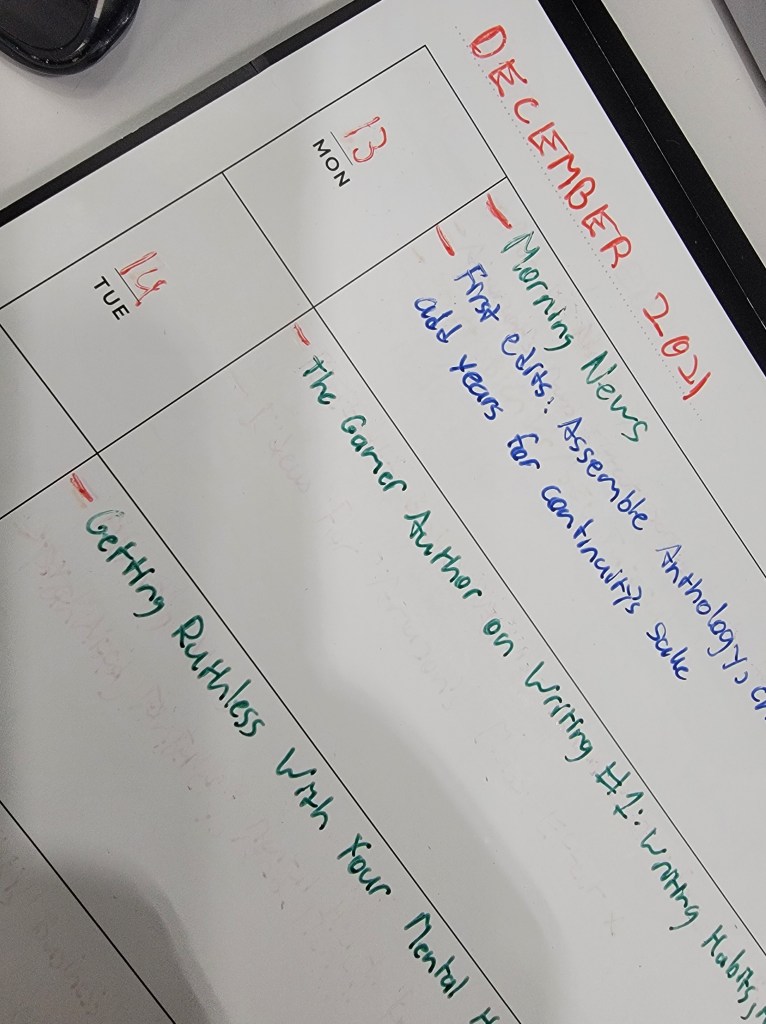 DECEMBER 2021
13
MON
- Morning News
- First edits: Assemble Anthology,
add years for continuity's sake
14
TUE
- The Gamer Author on Writing #1: Writing Habits,
- Getting Ruthless With Your Mental H